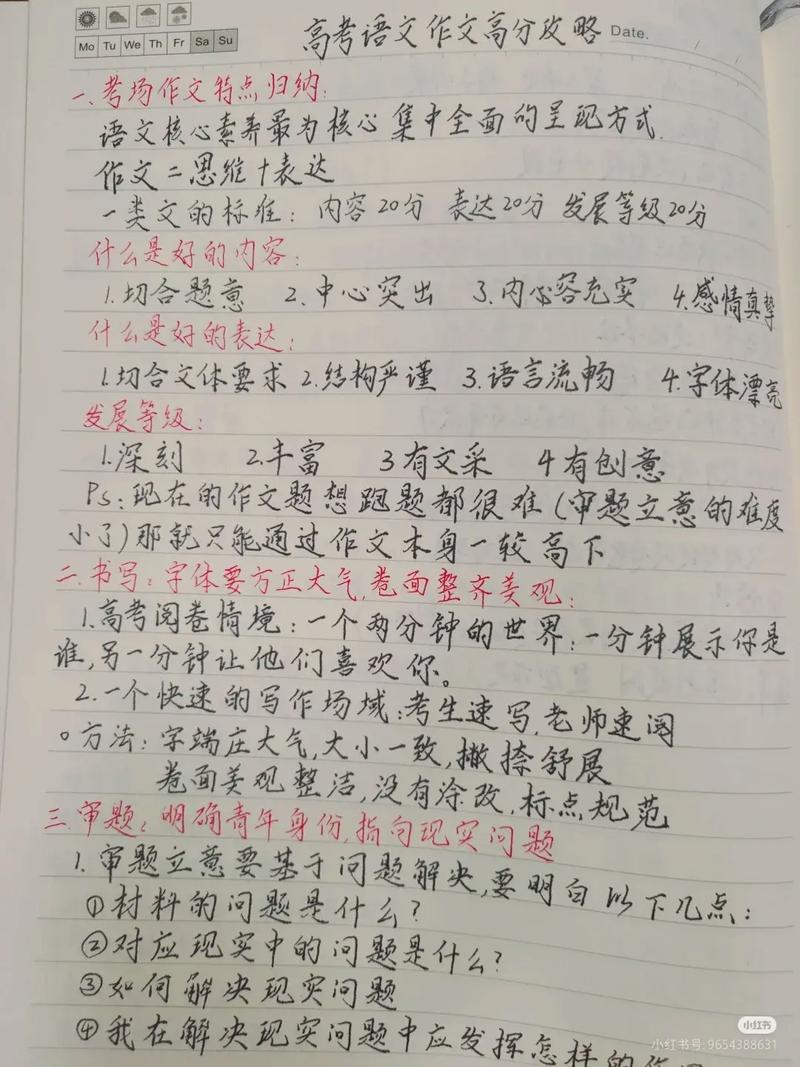 Mo Tu We Th Fr Sa Su
高考语文作文高分攻略 Date.
一、考场作文特点归纳:
语文核心素养最为核心 集中全面的呈现方式.
作文二思维十表达
一类文的标准: 内容20分 表达20分 发展等级20分
什么是好的内容:
1.切合题意 2.中心突出 3.内心容充实 4.感情真挚
什么是好的表达:
1.切合文体要求 2.结构严谨 3.语言流畅 4.字体漂亮
发展等级:
1.深刻 2.丰富 3有文采 4有创意
Ps:现在的作文题想跑题都很难(审题立意的难度
小了)那就只能通过作文本身一较高下
二.书写:字体要方正大气,卷面整齐美观:
1.高考阅卷情境:一个两分钟的世界:一分钟展示你是
谁,另一分钟让他们喜欢你。
2.一个快速的写作场域:考生速写,老师速阅
。方法:字端庄大气,大小一致,撇捺舒展
卷面美观整洁,没有涂改,标点规范
三.审题:明确青年身份,指向现实问题
1.审题立意要基于问题解决,要明白以下几点:
①材料的问题是什么?
②对应现实中的问题是什么?
③如何解决现实问题
④我在解决现实问题中应发挥怎样的作用
小红书
小红书号:9654388631